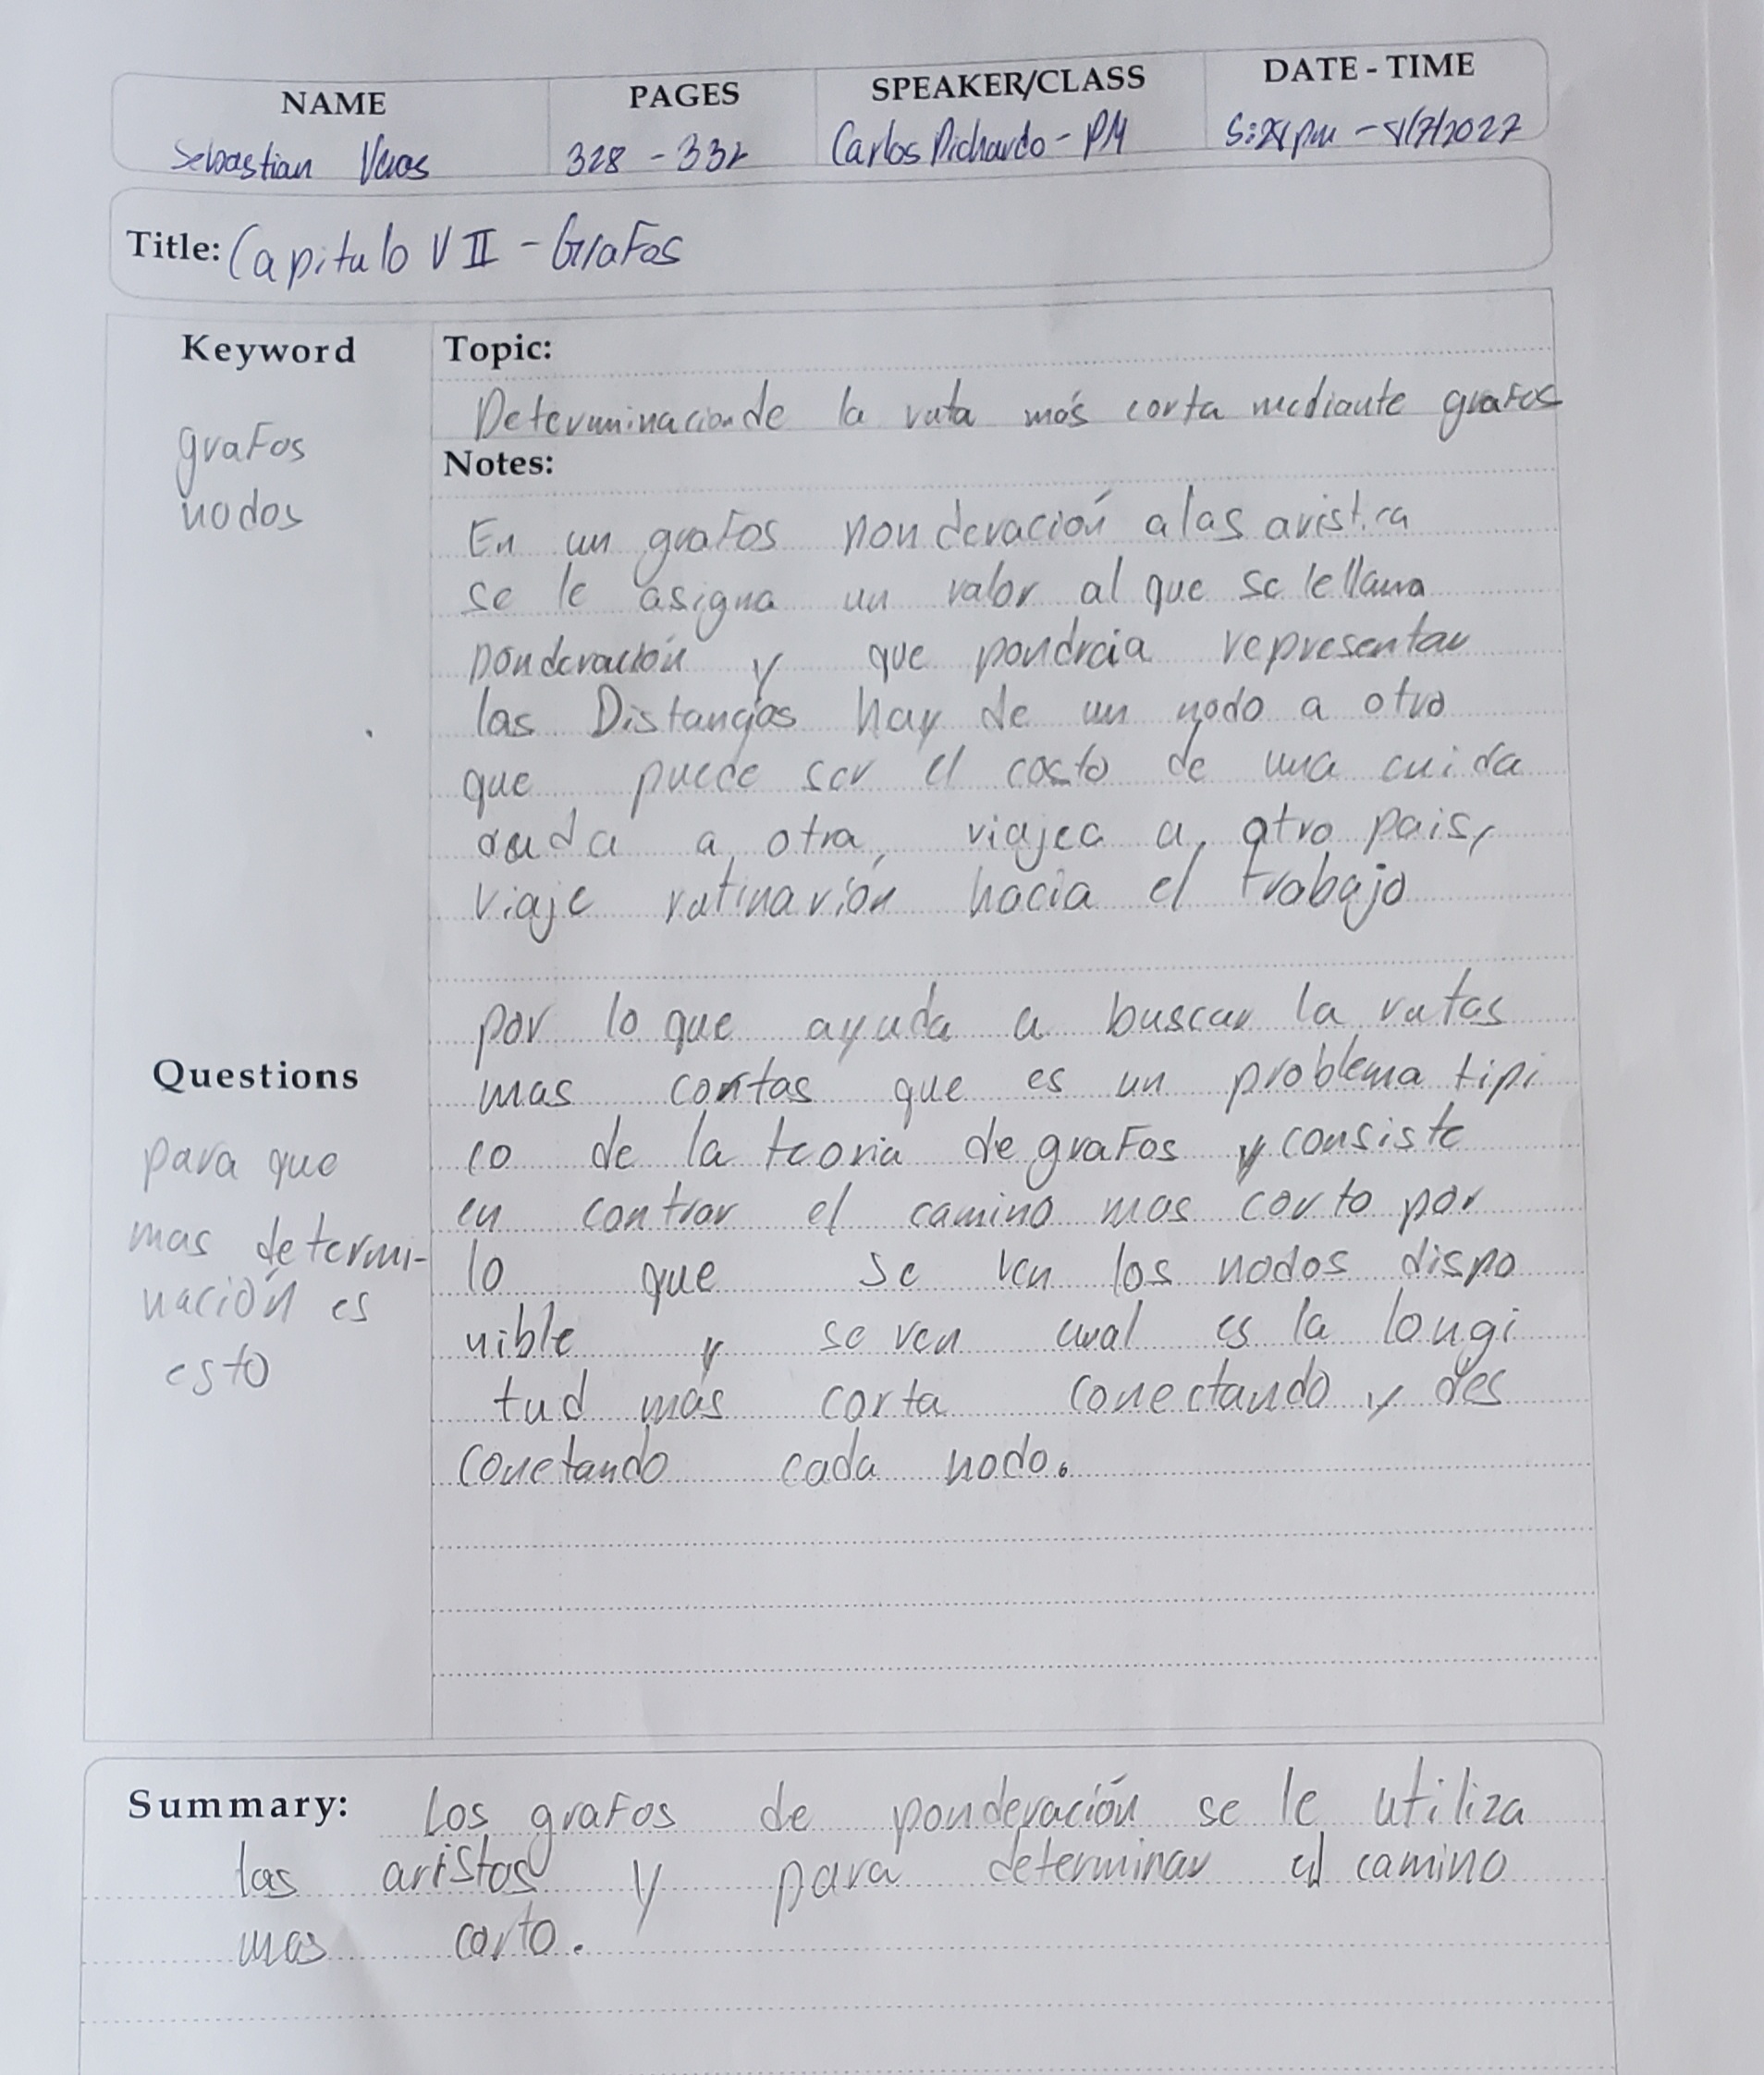 NAME PAGES SPEAKER/CLASS DATE - TIME
Sebastian Veras 328 - 332 Carlos Pichardo - PM pm - /7/2022
Title: Capitulo VII - Grafos
Keyword
grafos
nodos
Topic:
Determinacionde la ruta más corta mediante grafos
Notes:
En un grafos ponderación a las aristica
se le asigna un valor al que se le llama
ponderación y que pondraia representar
las Distancias hay de un nodo a otro
que puede ser el costo de una cuida
a otra, viajea a otro pais,
viaje rutinarión hacia el trabajo
por lo que ayuda a buscar la rutas
mas cortas que es un problema tipi
co de la teoria de grafos y consiste
en contrar el camino mas corto por
lo que se ven los nodos dispo
nible y se ven cual es la longi
tud más corta conectando y des
conetando cada nodo.
Questions
para que
mas determi-
nación es
esto
Summary: Los grafos de ponderación se le utiliza
las aristas y para determinar el camino
mas corto.